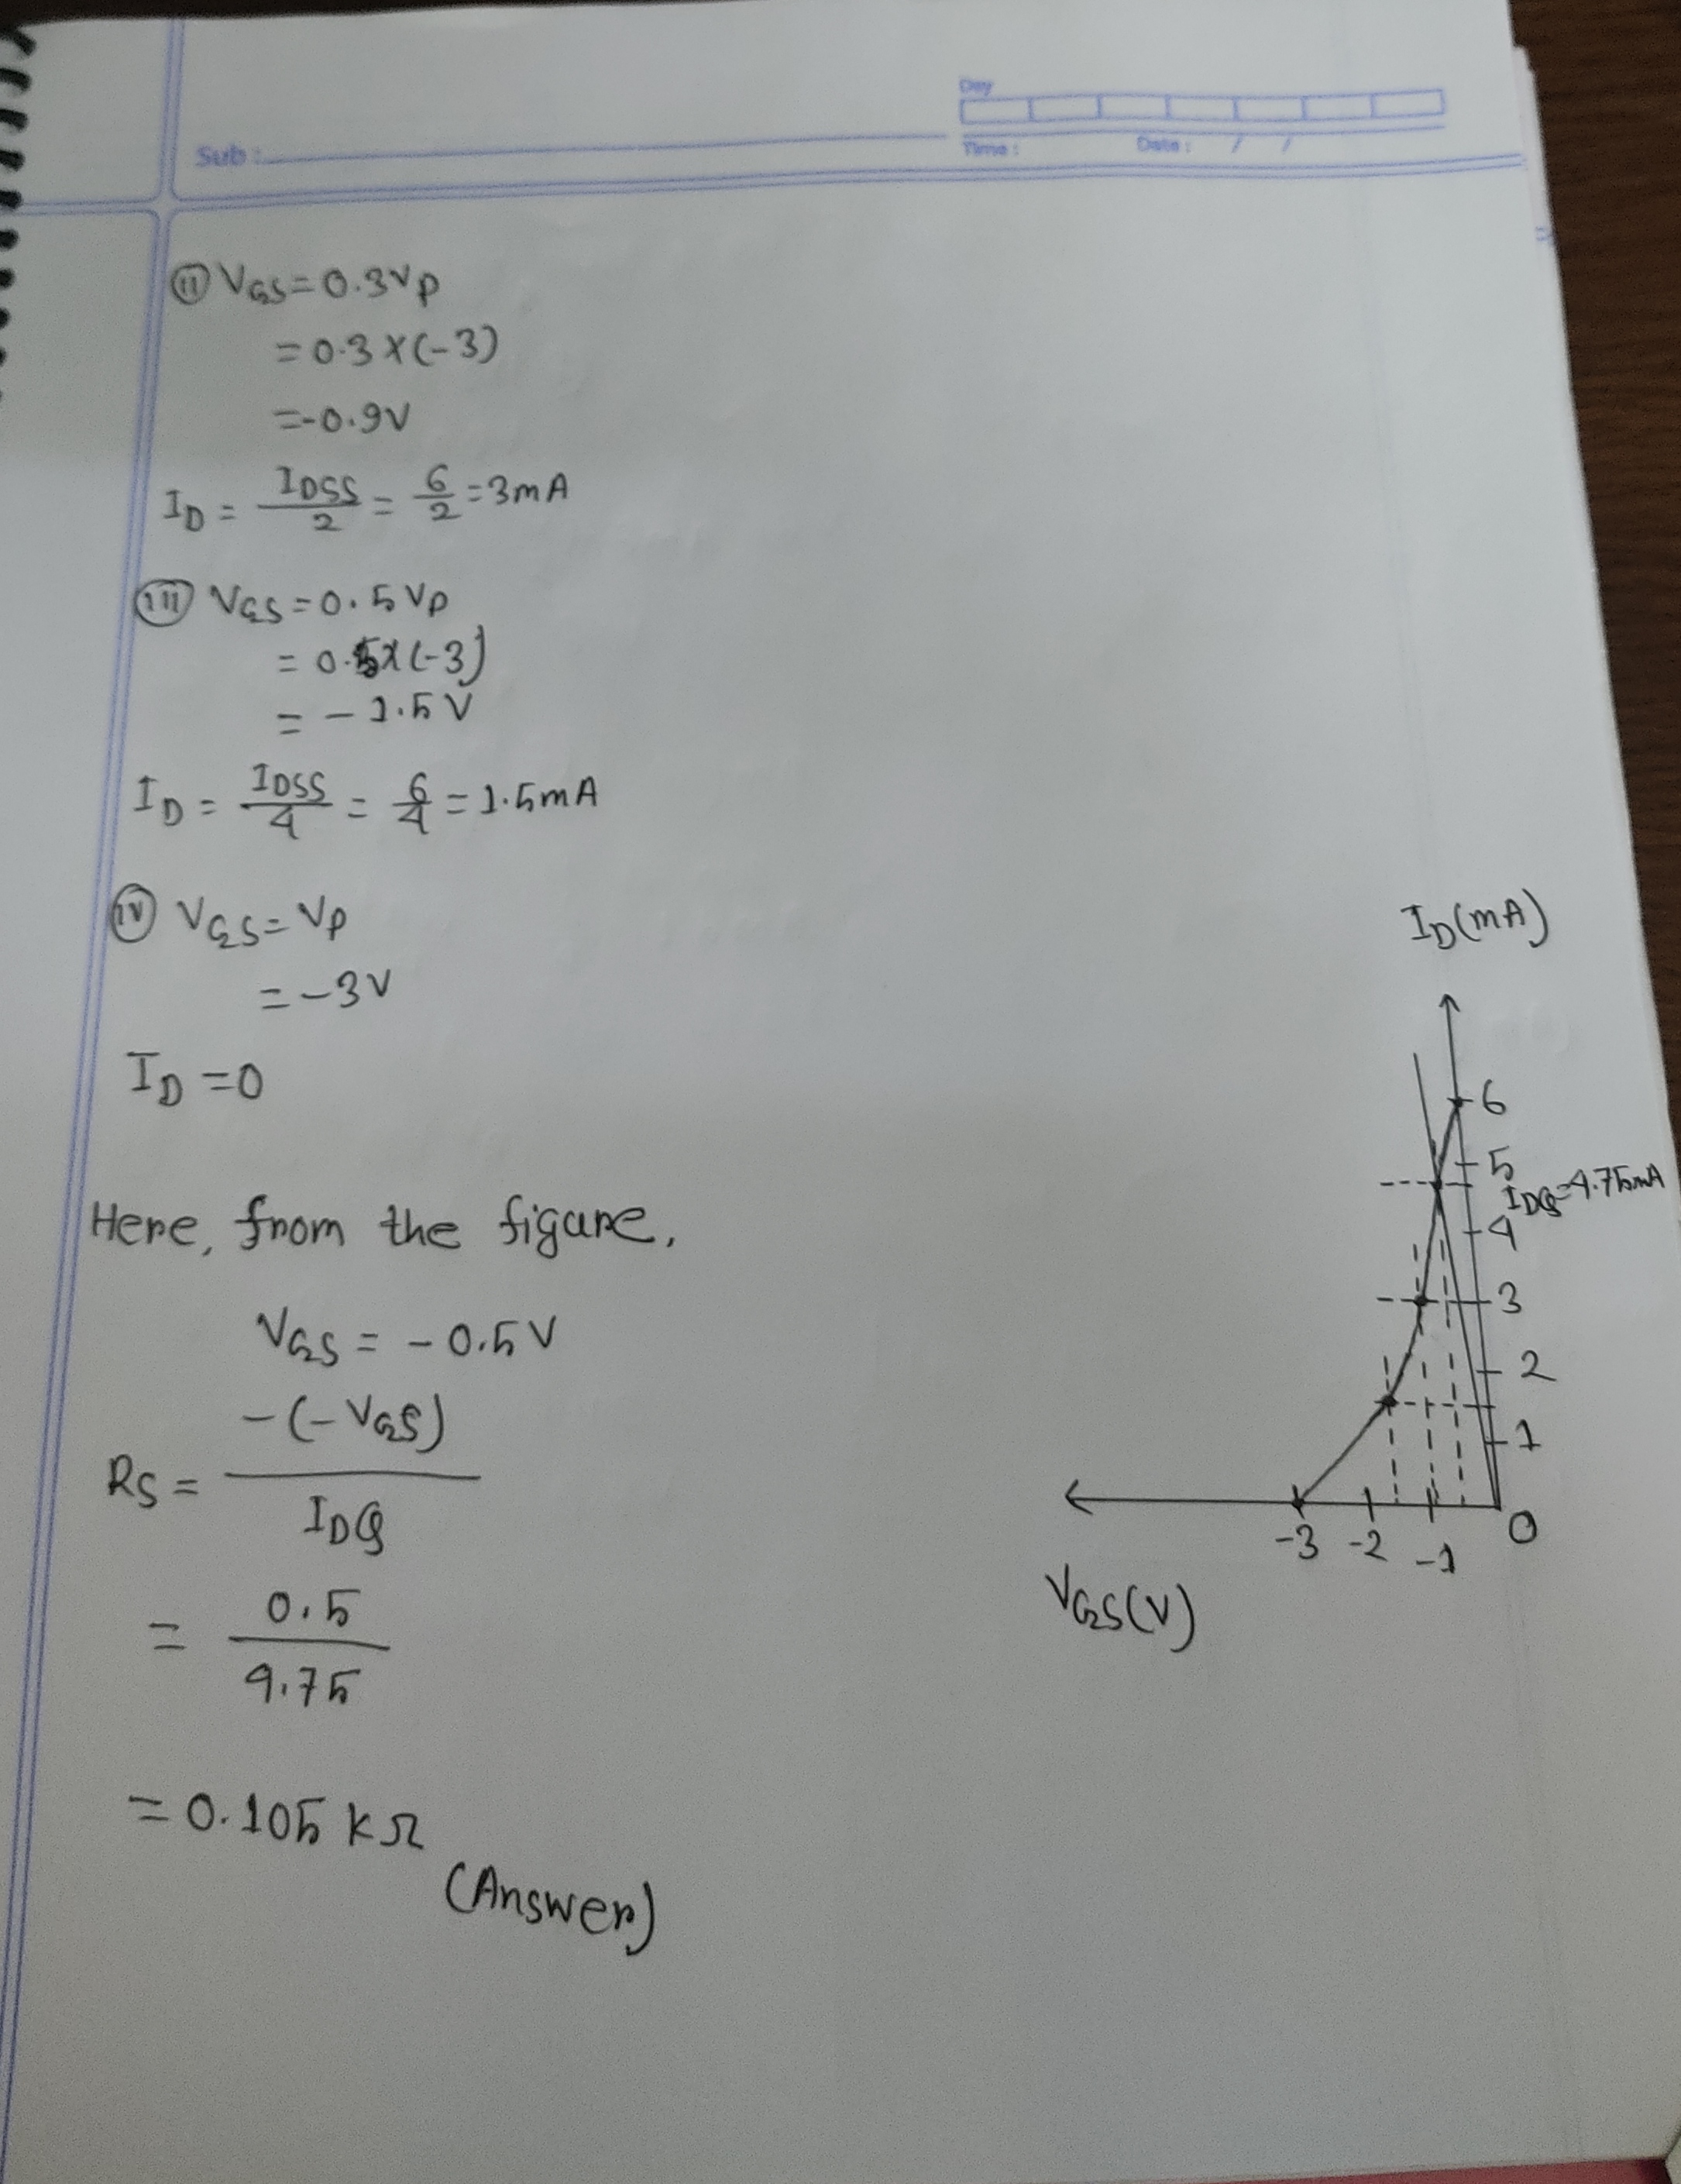 Day
Sub :
Time :
Date : / /
(ii) VGS = 0.3VP
= 0.3 X (-3)
= -0.9V
ID = IDSS/2 = 6/2 = 3mA
(iii) VGS = 0.5 VP
= 0.5X(-3)
= - 1.5 V
ID = IDSS/4 = 6/4 = 1.5mA
(iv) VGS = VP
= -3V
ID = 0
Here, from the figure,
VGS = - 0.5 V
RS = -(-VGS)/IDQ
= 0.5/4.75
= 0.105 kΩ
(Answer)
ID(mA)
6
5
IDQ=4.75mA
4
3
2
1
0
-3 -2 -1
VGS(V)